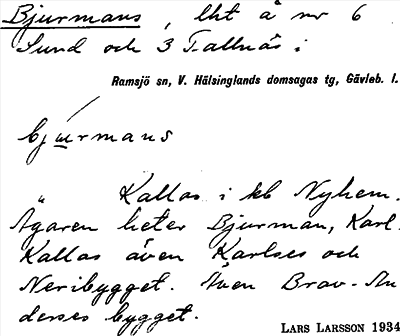 Bjurmans, lht å nr 6
Sund och 3 Tallnäs i
Ramsjö sn, V. Hälsinglands domsagas tg, Gävleb. l.
bjurmans
" Kallas i kb Nyhem.
Ägaren heter Bjurman, Karl.
Kallas även Karlses och
Neribygget. Även Brav-An
derses bygget.
LARS LARSSON 1934